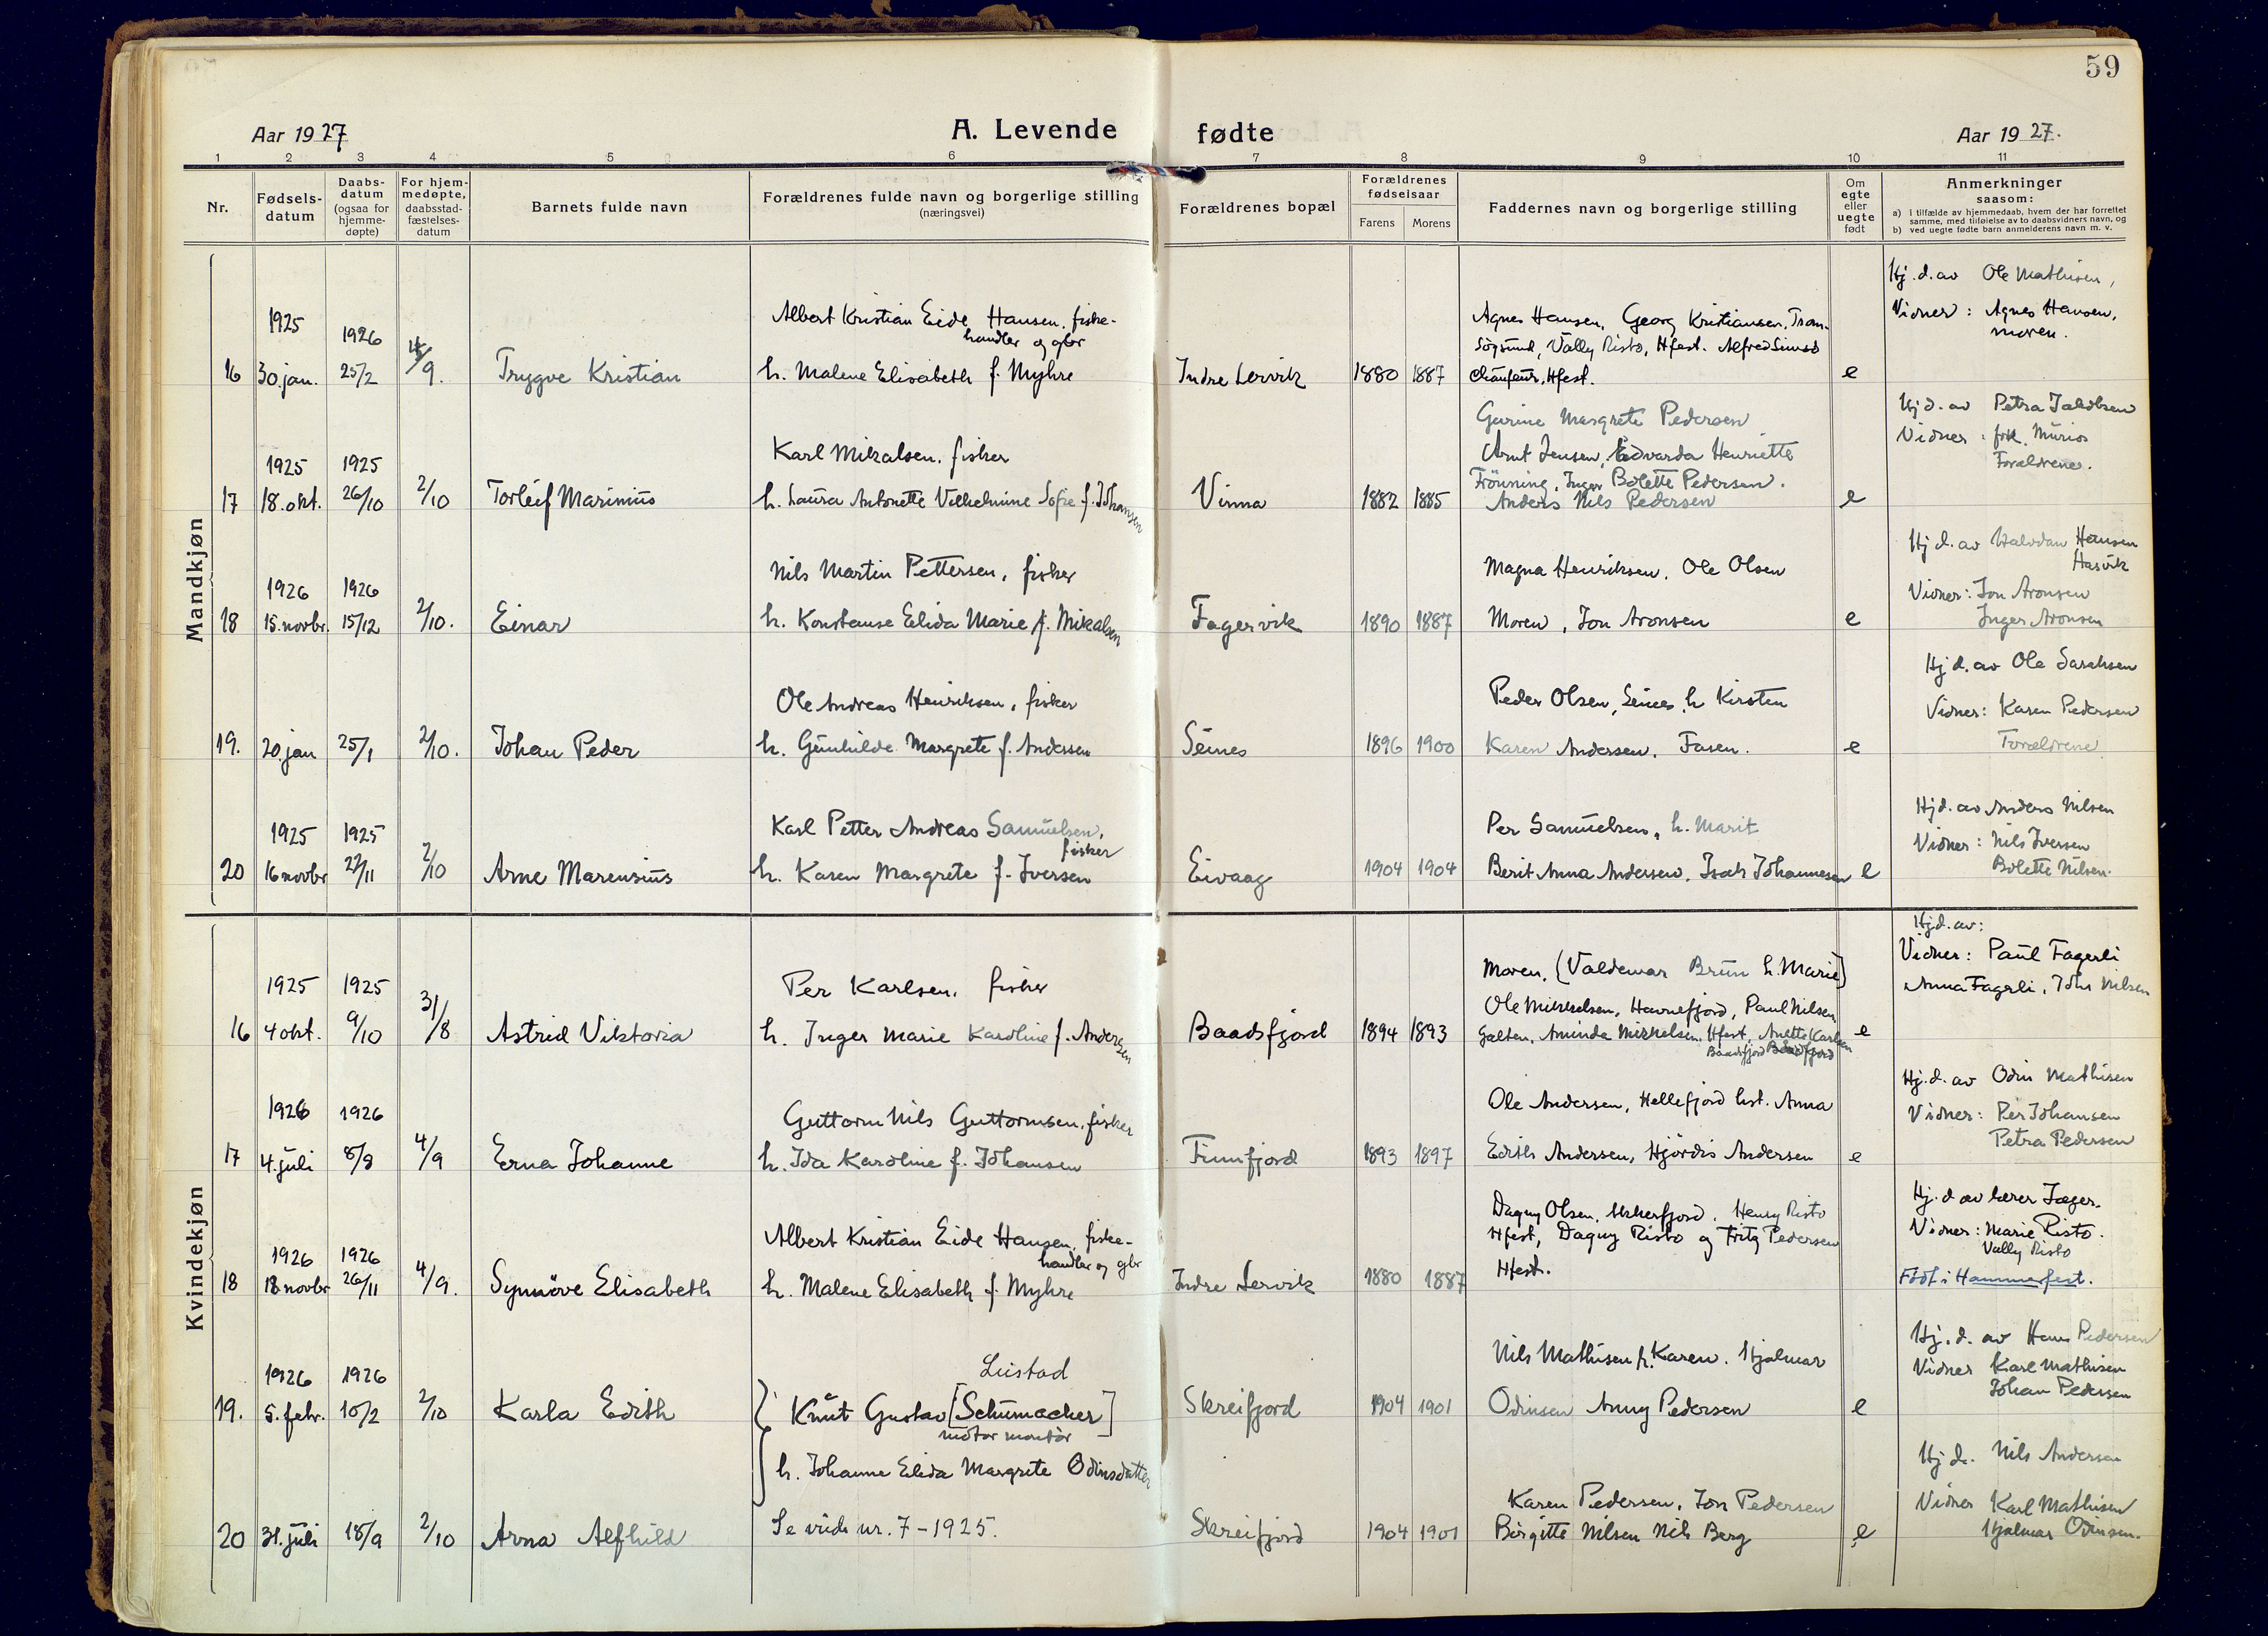 59
Aar 1927
A. Levende fødte
Aar 1927.
1 2 3 4 5 6 7 8 9 10 11
Nr.
Fødselsdatum
Daabsdatum (ogsaa for hjemmedøpte)
For hjemmedøpte, daabsstadfæstelsesdatum
Barnets fulde navn
Forældrenes fulde navn og borgerlige stilling
(næringsvei)
Forældrenes bopæl
Forældrenes fødselsaar
Farens Morens
Faddernes navn og borgerlige stilling
Om egte eller uegte født
Anmerkninger
saasom:
a) I tilfælde av hjemmedaab, hvem der har forrettet
samme, med tilføielse av to daabsvidners navn, og
b) ved uegte fødte barn anmelderens navn m. v.
Mandkjøn
1925 1926
16 30. jan. 25/2 /9. Trygve Kristian
Albert Kristian Eide Hansen, fiske-
handler og gbr
h. Malene Elisabeth f. Myhre
Indre Lervik 1880 1887
Agnes Hansen, Georg Kristiansen, Trom-
søysund, Vally Risto, Hfest. Alfred Simsø
Chaufeur, Hfest.
e
Hj. d. av Ole Mathisen,
Vidner: Agnes Hansen,
moren.
1925 1925
17 18. okt. 26/10 2/10 Torleif Marinius
Karl Mikalsen, fisker
h. Laura Antonette Vilhelmine Sofie f. Johansen
Vinna 1882 1885
Gurine Margrete Pedersen
Arnt Jensen, Edvarda Henriette
Frönning, Inger Bolette Pedersen.
Anders Nils Pedersen
e
Hj d. av Petra Jakobsen
Vidner:
Forældrene.
1926 1926
18 15. novbr. 15/12 2/10. Einar
Nils Martin Pettersen, fisker
h. Konstanse Elida Marie f. Mikalsen
Fagervik 1890 1887
Magna Henriksen, Ole Olsen
Moren, Jon Aronsen
e
Hj d. av Halvdan Hansen
Hasvik
Vidner: Jon Aronsen
Inger Aronsen
19. 20. jan 25/1 2/10. Johan Peder
Ole Andreas Henriksen, fisker
h. Gunhilde Margrete f. Andersen
Seines 1896 1900
Peder Olsen, Seines, h. Kirsten
Karen Andersen. Faren.
e
Hj d. av Ole Sarahsen
Vidner: Karen Pedersen
Forældrene
1925 1925
20 16 novbr 22/11 2/10 Arne Marensius
Karl Petter Andreas Samuelsen,
fisker
h. Karen Margrete f. Iversen
Eivaag 1904 1904
Per Samuelsen, h. Marit
Berit Anna Andersen, Isak Johannesen
e
Hj d. av Anders Nilsen
Vidner: Nils Iversen
Bolette Nilsen.
Kvindekjøn
1925 1925
16 4 okt. 9/10 31/8 Astrid Viktoria
Per Karlsen, fisker
h. Inger Marie Karoline f. Andersen
Baadsfjord 1894 1893
Moren, (Valdemar Brun h. Marie)
Ole Mikkelsen, Havnefjord, Paul Nilsen
Galten, Aminda Mikkelsen, Hfest, Anette Karlsen
Baadsfjord Baadfjord
e
Hj d. av:
Vidner: Paul Fagerli
Anna Fagerli, Johs Nilsen
1926 1926
17 4. juli 8/8 4/9 Erna Johanne
Guttorm Nils Guttormsen, fisker
h. Ida Karoline f. Johansen
Finnfjord 1893 1897
Ole Andersen, Hellefjord hst. Anna
Edith Andersen, Hjördis Andersen
e
Hj. d. av Odin Mathisen
Vidner: Per Johansen
Petra Pedersen
1926 1926
18 18 novbr 26/11 4/9. Synnöve Elisabeth
Albert Kristian Eide Hansen, fiske-
handler og gbr
h. Malene Elisabeth f. Myhre
Indre Lervik 1880 1887
Dagny Olsen, Akkerfjord, Henry Risto
Hfest, Dagny Risto og Fritz Pedersen
Hfest.
Hj. d. av lærer Jæger.
Vidner: Marie Risto.
Vally Risto
Født i Hammerfest.
1926 1926
19. 5. febr. 10/2 2/10 Karla Edith
Liistad
Knut Gustav [Schumacher]
motor montör
h. Johanne Elida Margrete Odinsdatter
Skreifjord 1904 1901
Nils Mathisen h. Karen. Hjalmar
Odinsen Anny Pedersen
e
Hj. d. av Hans Pedersen
Vidner Karl Mathisen
Johan Pedersen
20 31. juli 18/9 2/10 Arna Alfhild
Se vide nr. 7 - 1925.
Skreifjord 1904 1901
Karen Pedersen, Jon Pedersen
Birgitte Nilsen Nils Berg
e
Hj d. Nils Andersen
Vidner Karl Mathisen
Hjalmar Odinsen.